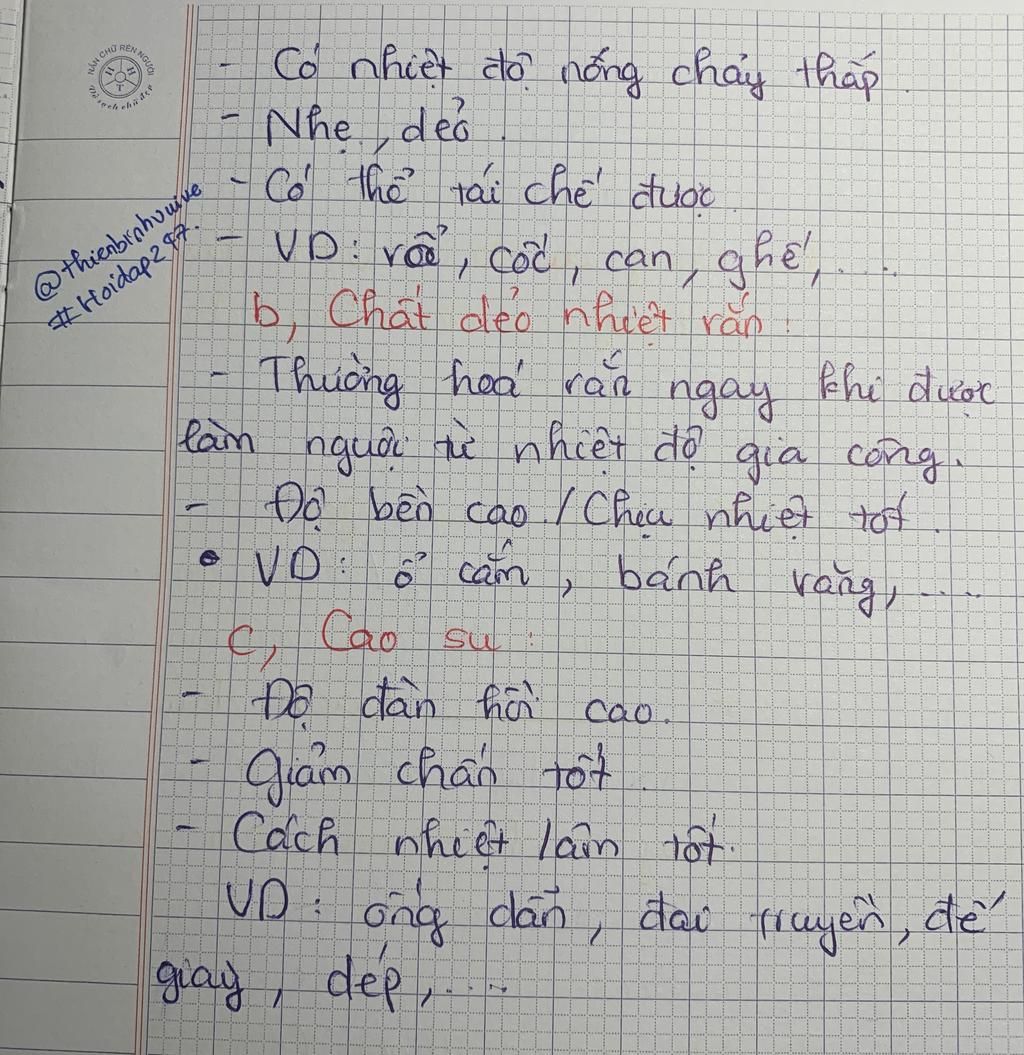 NẮN CHỮ RÈN NGƯỜI
H H T
Vở sạch chữ đẹp
- Có nhiệt độ nóng chảy thấp.
- Nhẹ, dẻo.
- Có thể tái chế được
@thienbinhvuive
#Hoidap247.
- VD: rổ, cốc, can, ghế,.....
b, Chất dẻo nhiệt rắn:
- Thường hoá rắn ngay khi được
làm nguội từ nhiệt độ gia công.
- Độ bền cao / Chịu nhiệt tốt.
• VD: ổ cắm, bánh răng,.....
c, Cao su:
- Độ đàn hồi cao.
- Giảm chấn tốt
- Cách nhiệt/âm tốt.
VD: ống dẫn, đai truyền, đế
giày, dép,....